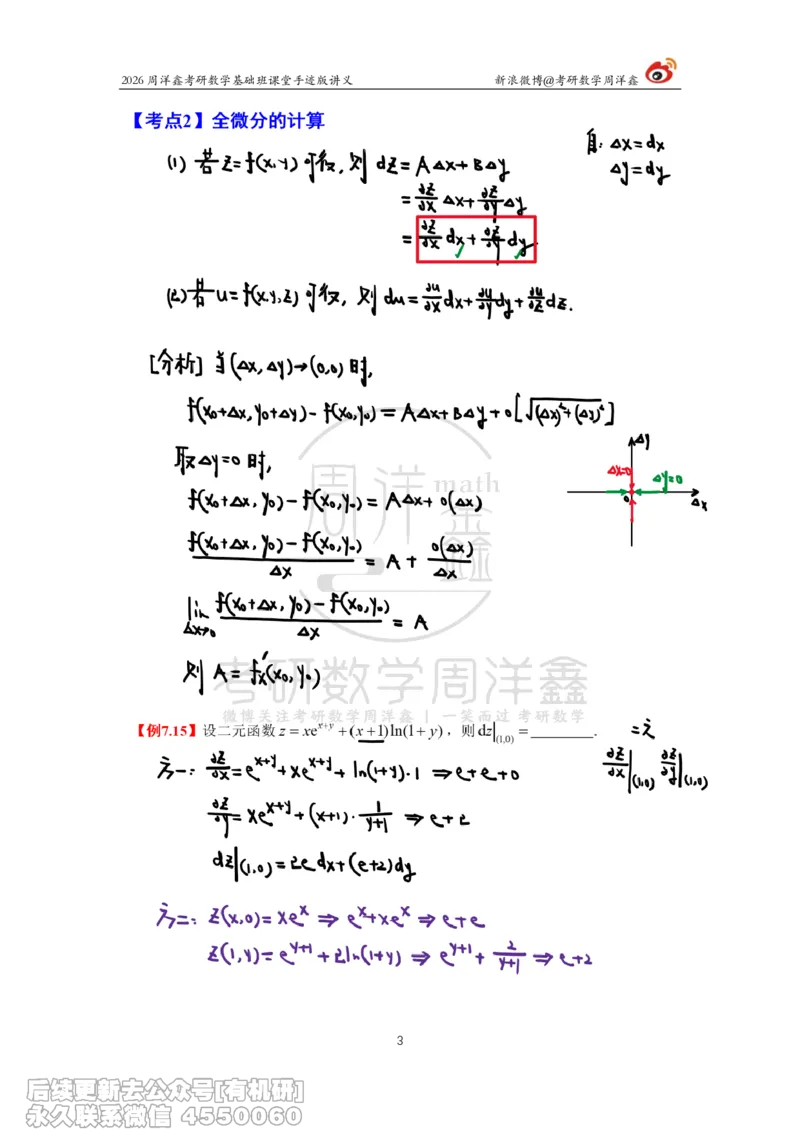 2026 周洋鑫考研数学基础班课堂手迹版讲义 新浪微博@考研数学周洋鑫
【考点2】全微分的计算
自: Δx=dx
Δy=dy
(1) 若 z=f(x,y) 可微, 则 dz = AΔx+BΔy
= ∂z/∂x Δx + ∂z/∂y Δy
= ∂z/∂x dx + ∂z/∂y dy.
(2) 若 u=f(x,y,z) 可微, 则 du = ∂u/∂x dx + ∂u/∂y dy + ∂u/∂z dz.
[分析] 当 (Δx,Δy)→(0,0) 时,
f(x₀+Δx, y₀+Δy) - f(x₀,y₀) = AΔx+BΔy+o[√((Δx)²+(Δy)²)]
取 Δy=0 时,
f(x₀+Δx, y₀) - f(x₀,y₀) = AΔx + o(Δx)
(f(x₀+Δx, y₀) - f(x₀,y₀))/Δx = A + o(Δx)/Δx
lim Δx→0 (f(x₀+Δx, y₀) - f(x₀,y₀))/Δx = A
则 A = f′x(x₀,y₀)
Δy
Δx=0
Δy=0
0
Δx
周洋鑫
math
考研数学周洋鑫
微博关注考研数学周洋鑫 | 一笑而过 考研数学
【例7.15】设二元函数 z = xe^(x+y) + (x+1)ln(1+y), 则 dz|(1,0) = ________.
=元
∂z/∂x|(1,0) ∂z/∂y|(1,0)
方一: ∂z/∂x = e^(x+y) + xe^(x+y) + ln(1+y)·1 ⇒ e+e+0
∂z/∂y = xe^(x+y) + (x+1)· 1/(y+1) ⇒ e+2
dz|(1,0) = 2e dx+(e+2)dy
方二: z(x,0) = xe^x ⇒ e^x+xe^x ⇒ e+e
z(1,y) = e^(y+1) + 2ln(1+y) ⇒ e^(y+1) + 2/(y+1) ⇒ e+2
3
后续更新去公众号[有机研]
永久联系微信 4550060